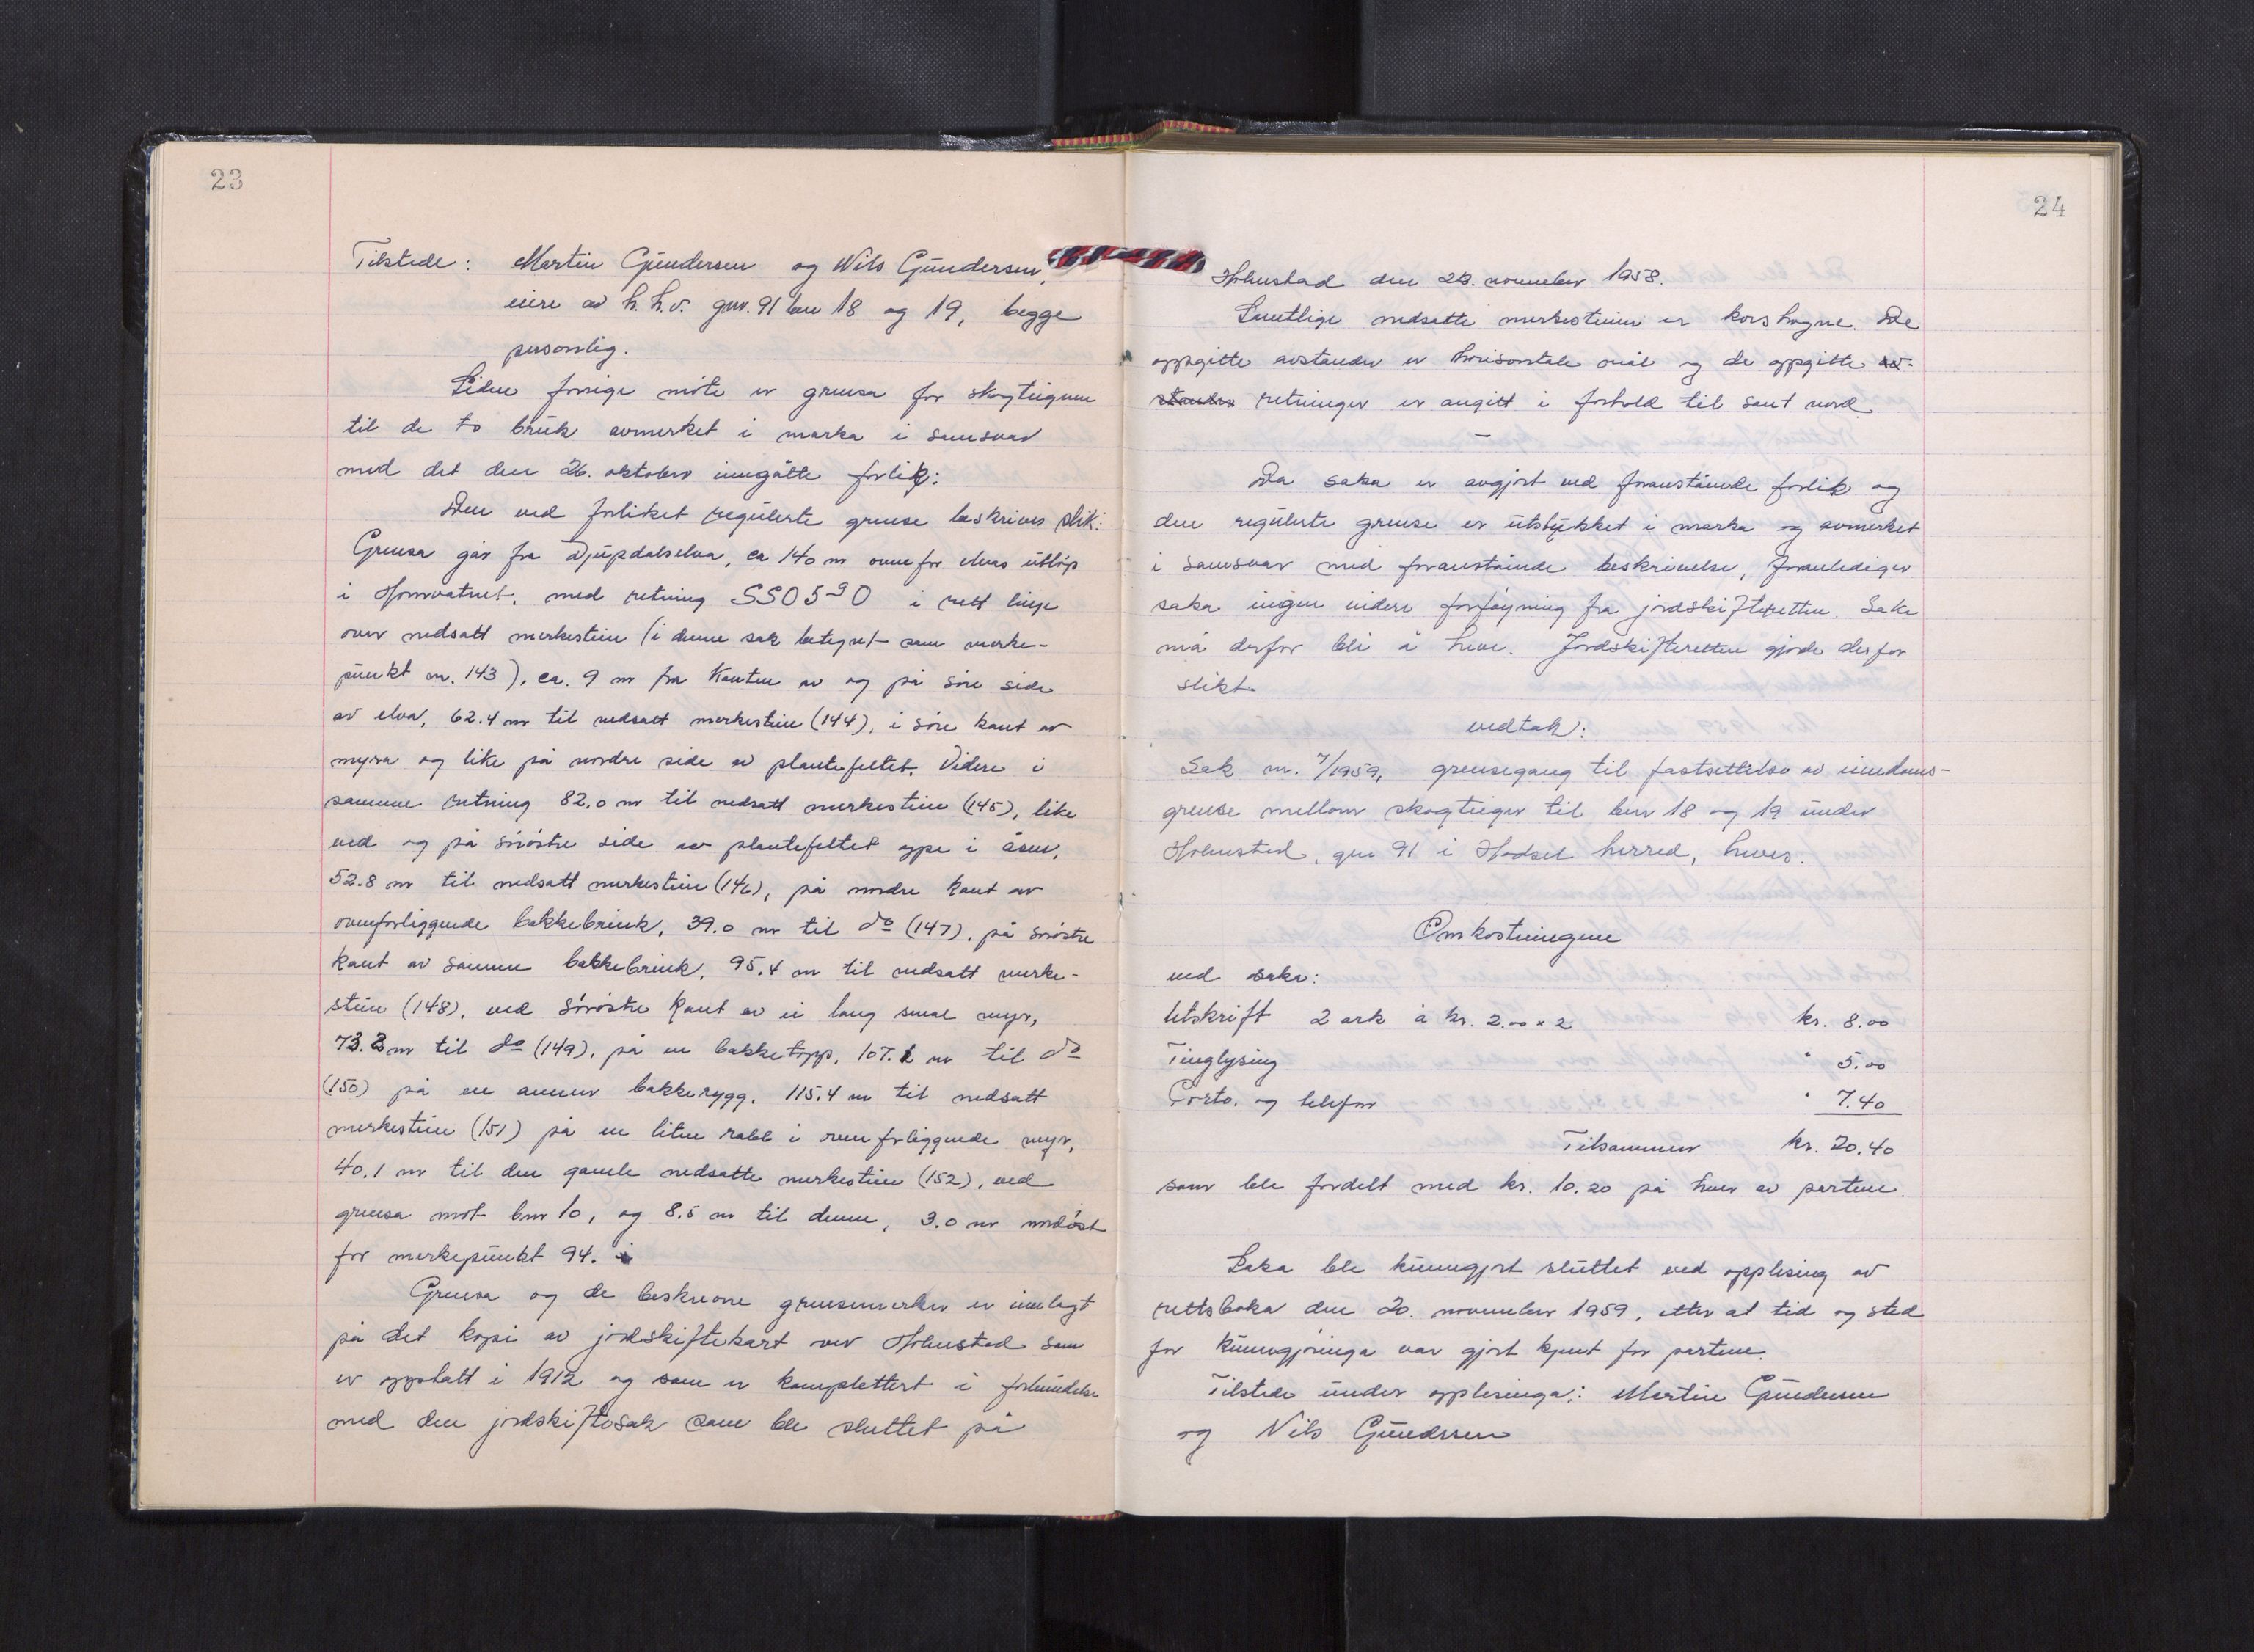 23
Tilstede: Martin Gundersen og Nils Gundersen,
eiere av h.h.v. gnr. 91 bnr 18 og 19, begge
personlig.
Siden forrige møte er grensa for skogteigene
til de to bruk avmerket i marka i samsvar
med det den 26. oktober inngåtte forlik:
Den ved forliket regulerte grense beskrives slik:
Grensa går fra Djupdalselva, ca 140 m ovenfor elvas utløp
i Homvatnet, med retning SSO 5 g O i rett linje
over nedsatt merkestein (i denne sak betegnet som merke-
punkt nr. 143), ca. 9 m fra kanten av og på søre side
av elva, 62.4 m til nedsatt merkestein (144), i søre kant av
myra og like på nordre side av plantefeltet. Videre i
samme retning 82.0 m til nedsatt merkestein (145), like
ved og på sørøstre side av plantefeltet oppe i åsen,
52.8 m til nedsatt merkestein (146), på nordre kant av
ovenforliggende bakkebrink, 39.0 m til do (147), på sørøstre
kant av samme bakkebrink, 95.4 m til nedsatt merke-
stein (148), ved sørøstre kant av ei lang smal myr,
73.3 m til do (149), på en bakketopp, 107.1 m til do
(150) på en annen bakkerygg, 115.4 m til nedsatt
merkestein (151) på en liten rabb i ovenforliggende myr,
40.1 m til den gamle nedsatte merkestein (152), ved
grensa mot bnr 10, og 8.5 m til denne, 3.0 m nordøst
for merkepunkt 94.
Grensa og de beskrevne grensemerker er innlagt
på det kopi av jordskiftekart over Holmstad som
er opptatt i 1912 og som er komplettert i forbindelse
med den jordskiftesak som ble sluttet på
24
Holmstad den 22. november 1958.
Samtlige nedsatte merkesteiner er korshogne. De
oppgitte avstander er horisontale mål og de oppgitte av-
stander retninger er angitt i forhold til sant nord.
Da saka er avgjort ved foranstående forlik og
den regulerte grense er utstykket i marka og avmerket
i samsvar med foranstående beskrivelse, foranlediger
saka ingen videre forføyning fra jordskifteretten. Saka
må derfor bli å heve. Jordskifteretten gjorde derfor
slikt
vedtak:
Sak nr. 7/1959, grensegang til fastsettelse av eiendoms-
grense mellom skogteiger til bnr 18 og 19 under
Holmstad, gnr 91 i Hadsel herred, heves.
Omkostningene
ved saka:
Utskrift 2 ark à kr. 2.00 x 2 kr. 8.00
Tinglysing " 5.00
Porto og telefon " 7.40
Tilsammen kr. 20.40
som ble fordelt med kr. 10.20 på hver av partene.
Saka ble kunngjort sluttet ved opplesing av
rettsboka den 20. november 1959, etter at tid og sted
for kunngjøringa var gjort kjent for partene.
Tilstede under opplesinga: Martin Gundersen
og Nils Gundersen